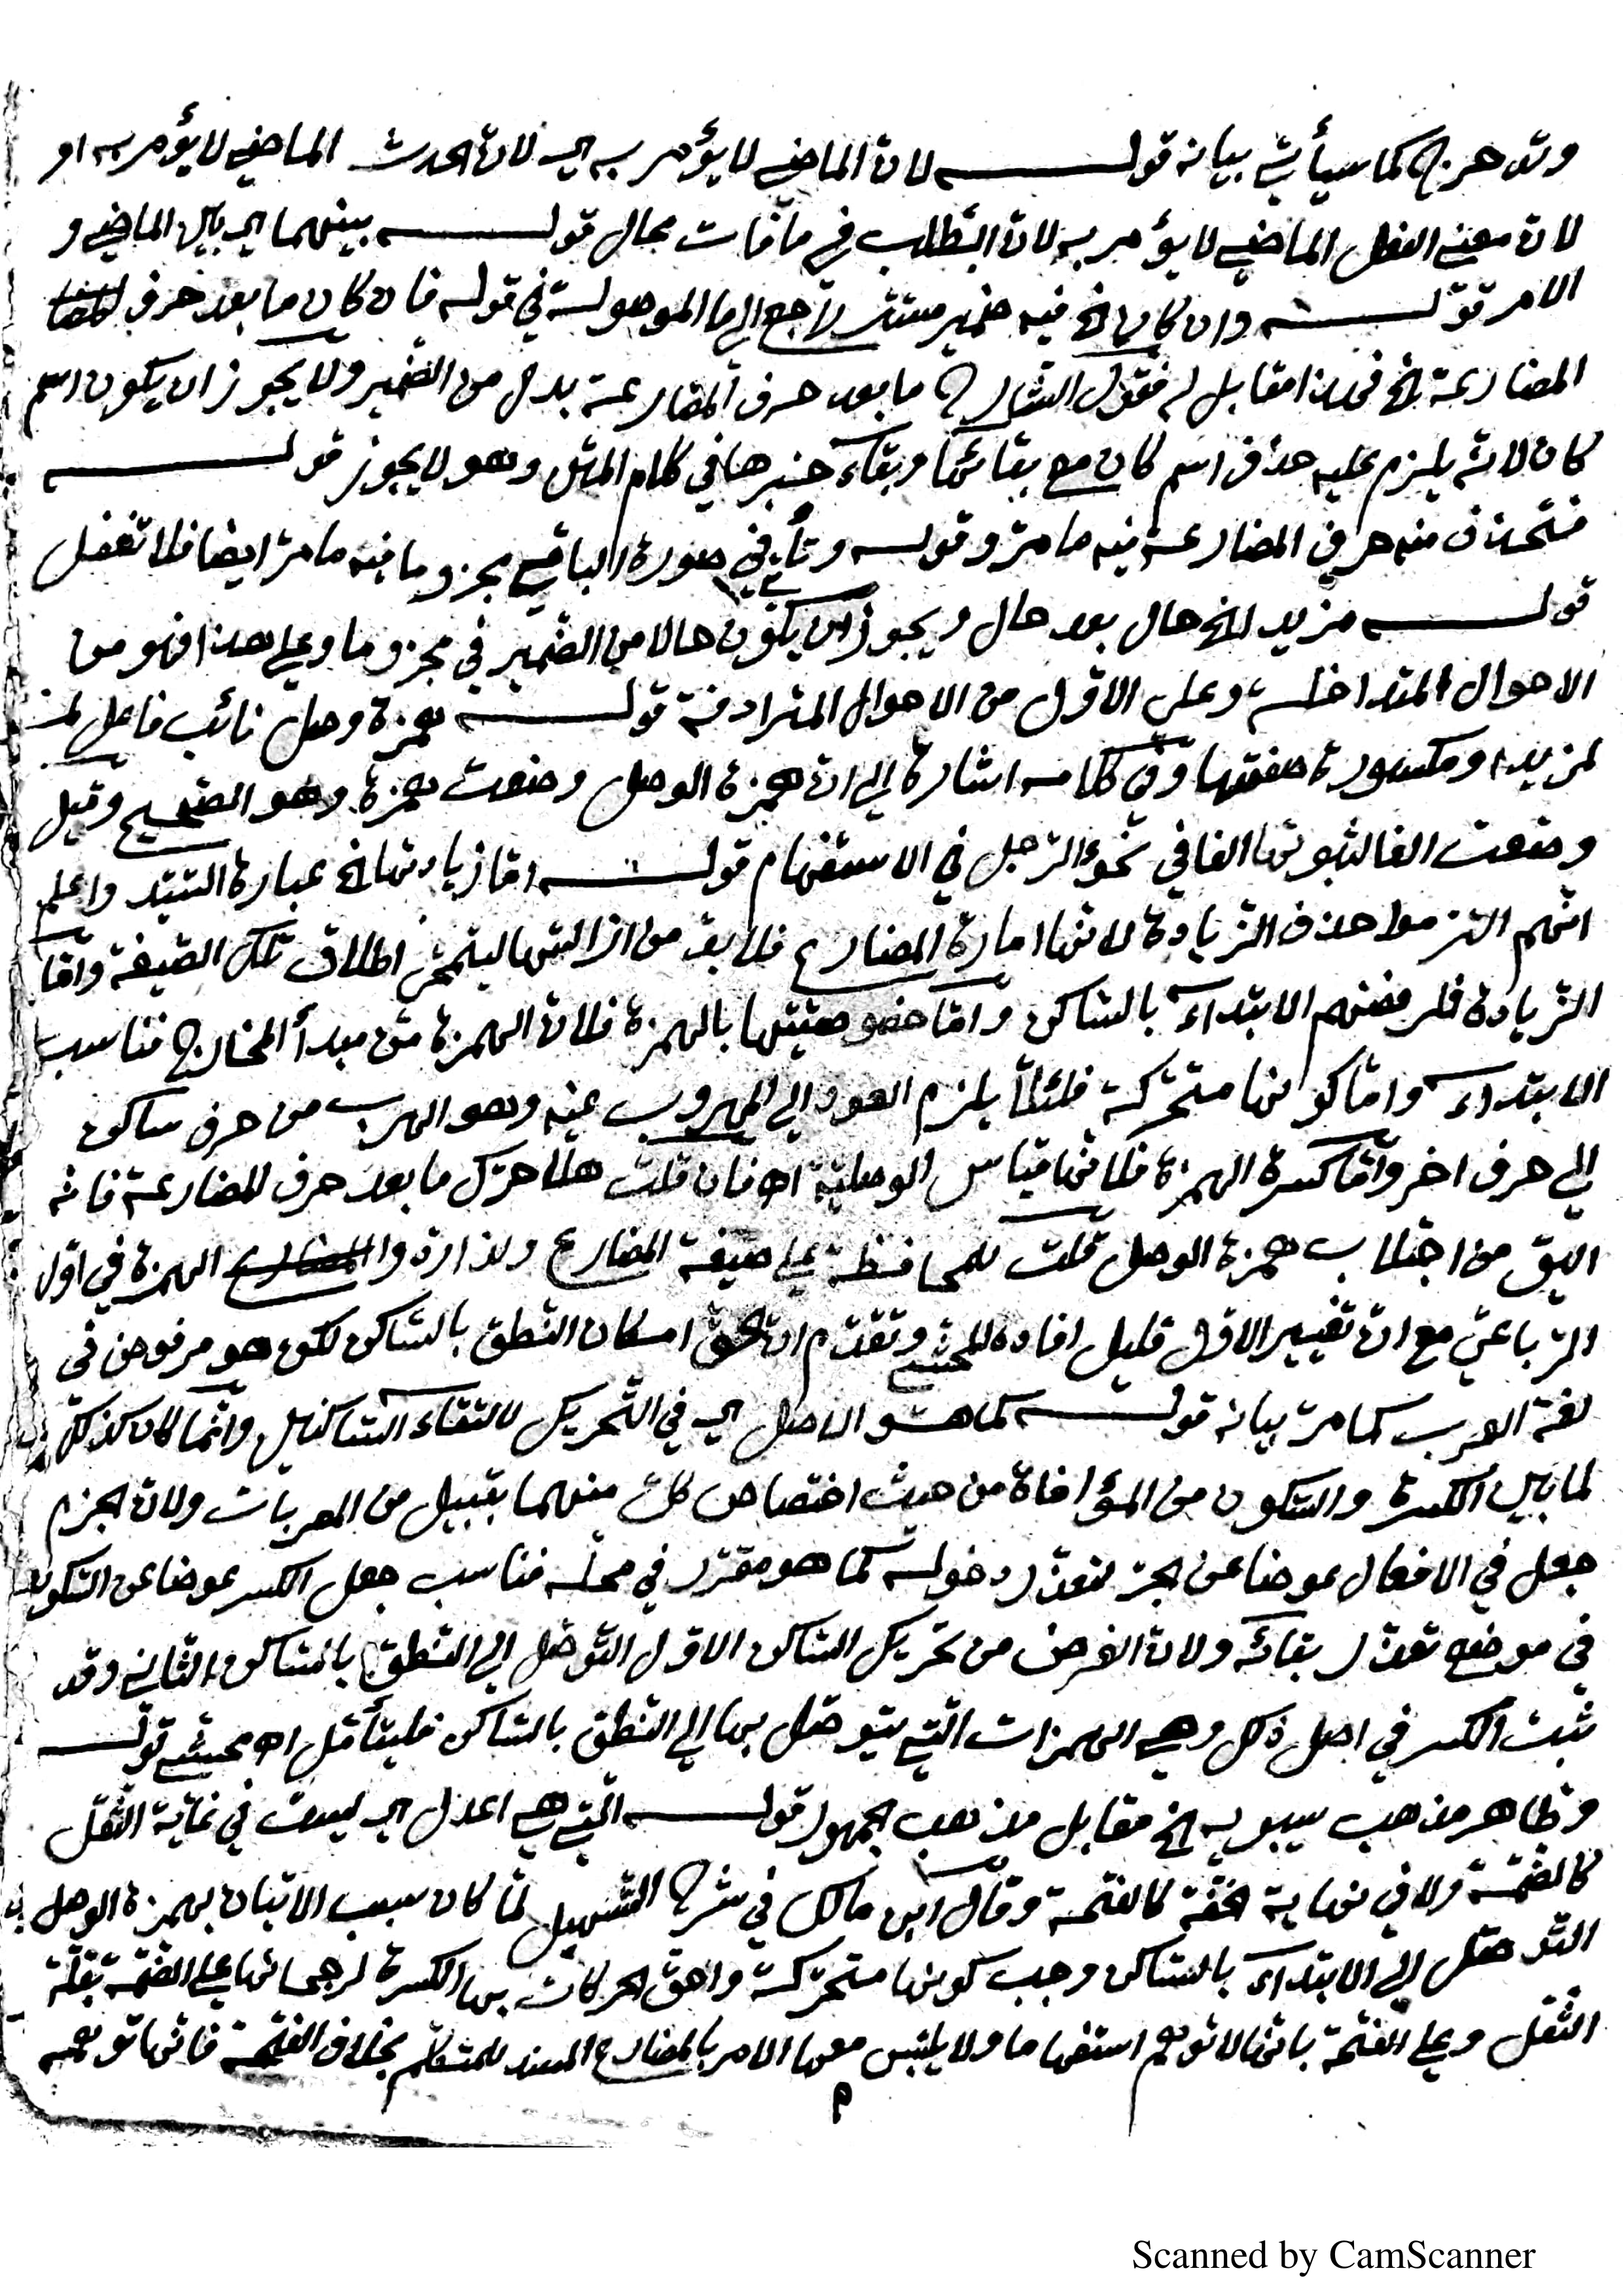 وتدحرج كما سيأتي بيانه قولـــه لانّ الماضي لا يؤمر به اي لانّ الحدث الماضي لا يؤمر به او
لانّ معنى الفعل الماضي لا يؤمر به لانّ الطلب في ما فات محال قولـــه بينهما اي بين الماضي و
الامر قولـــه وان كان الخ فيه ضمير مستتر راجع الى ما الموصولة في قوله فان كان ما بعد حرف
المضارعة الخ فهذا مقابل له فقول الشارح ما بعد حرف المضارعة بدل من الضمير ولا يجوز ان يكون اسم
كان لانّه يلزم عليه حذف اسم كان مع بقائها وبقاء خبرها في كلام المتن وهو لا يجوز قولـــه
فتحذف منه حرف المضارعة فيه ما مرّ وقوله وتأتي في صورة الباقي مجزوما فيه ما مرّ ايضا فلا تغفل
قولـــه مزيد الخ حال بعد حال ويجوز ان يكون حالا من الضمير في مجزوما وعلى هذا فهو من
الاحوال المتداخلة وعلى الاوّل من الاحوال المترادفة قولـــه همزة وصل نائب فاعل
لمزيدا ومكسورة صفتها وفي كلامه اشارة الى انّ همزة الوصل وضعت همزة وهو الصّحيح وقيل
وضعت الفا لثبوتها الفا في نحو الرّجل في الاستفهام قولـــه امّا زيادتها الخ عبارة السّيّد واعلم
انّهم التزموا حذف الزّيادة لانّها امارة المضارع فلا بدّ من ازالتها ليتمحّض اطلاق تلك الصّيغة وامّا
الزّيادة فلرفضهم الابتداء بالسّاكن وامّا خصوصيّتها بالهمزة فلانّ الهمزة من مبدأ المخارج فناسب
الابتداء وامّا كونها متحرّكة فلئلّا يلزم العود الى المهروب عنه وهو الهرب من حرف ساكن
الى حرف اخر وامّا كسرة الهمزة فلانّها قياس الوصليّة اهـ فان قلت هلّا حرّك ما بعد حرف المضارعة فانّه
اليق من اجتلاب همزة الوصل قلت للمحافظة على صيغة المضارع ولذا الهمزة في اوّل
الرّباعيّ مع انّ تغيير الاوّل قليل افاده المحشّي وتقدّم انّ الحقّ امكان النّطق بالسّاكن لكن هو مرفوض في
لغة العرب كما مرّ بيانه قولـــه كما هو الاصل اي في التّحريك لالتقاء السّاكنين وانّما كان كذلك
لما بين الكسرة والسّكون من المؤاخاة من حيث اختصاص كلّ منهما بقبيل من المعربات ولانّ الجزم
جعل في الافعال عوضا عن الجرّ لتعذّر دخوله كما هو مقرّر في محلّه فناسب جعل الكسر عوضا عن السّكون
في موضع تعذّر بقائه ولانّ الغرض من تحريك السّاكن الاوّل التّوصّل الى النّطق بالسّاكن الثّاني وقد
ثبت الكسر في اصل ذلك وهي الهمزات الّتي يتوصّل بها الى النّطق بالسّاكن فليتأمّل اهـ محشّي قولـــه
وظاهر مذهب سيبويه الخ مقابل مذهب الجمهور قولـــه الّتي هي اعدل اي ليست في غاية الثّقل
كالضّمّة ولا في نهاية الخفّة كالفتحة وقال ابن مالك في شرح التّسهيل لمّا كان سبب الاتيان بهمزة الوصل
التّوصّل الى الابتداء بالسّاكن وجب كونها متحرّكة واحقّ الحركات بها الكسرة لرجحانها على الضّمّة بقلّة
الثّقل وعلى الفتحة بانّها لا توهم استفهاما ولا يلتبس معها الامر بالمضارع المسند للمتكلّم بخلاف الفتحة فانّها توهمه
م
Scanned by CamScanner